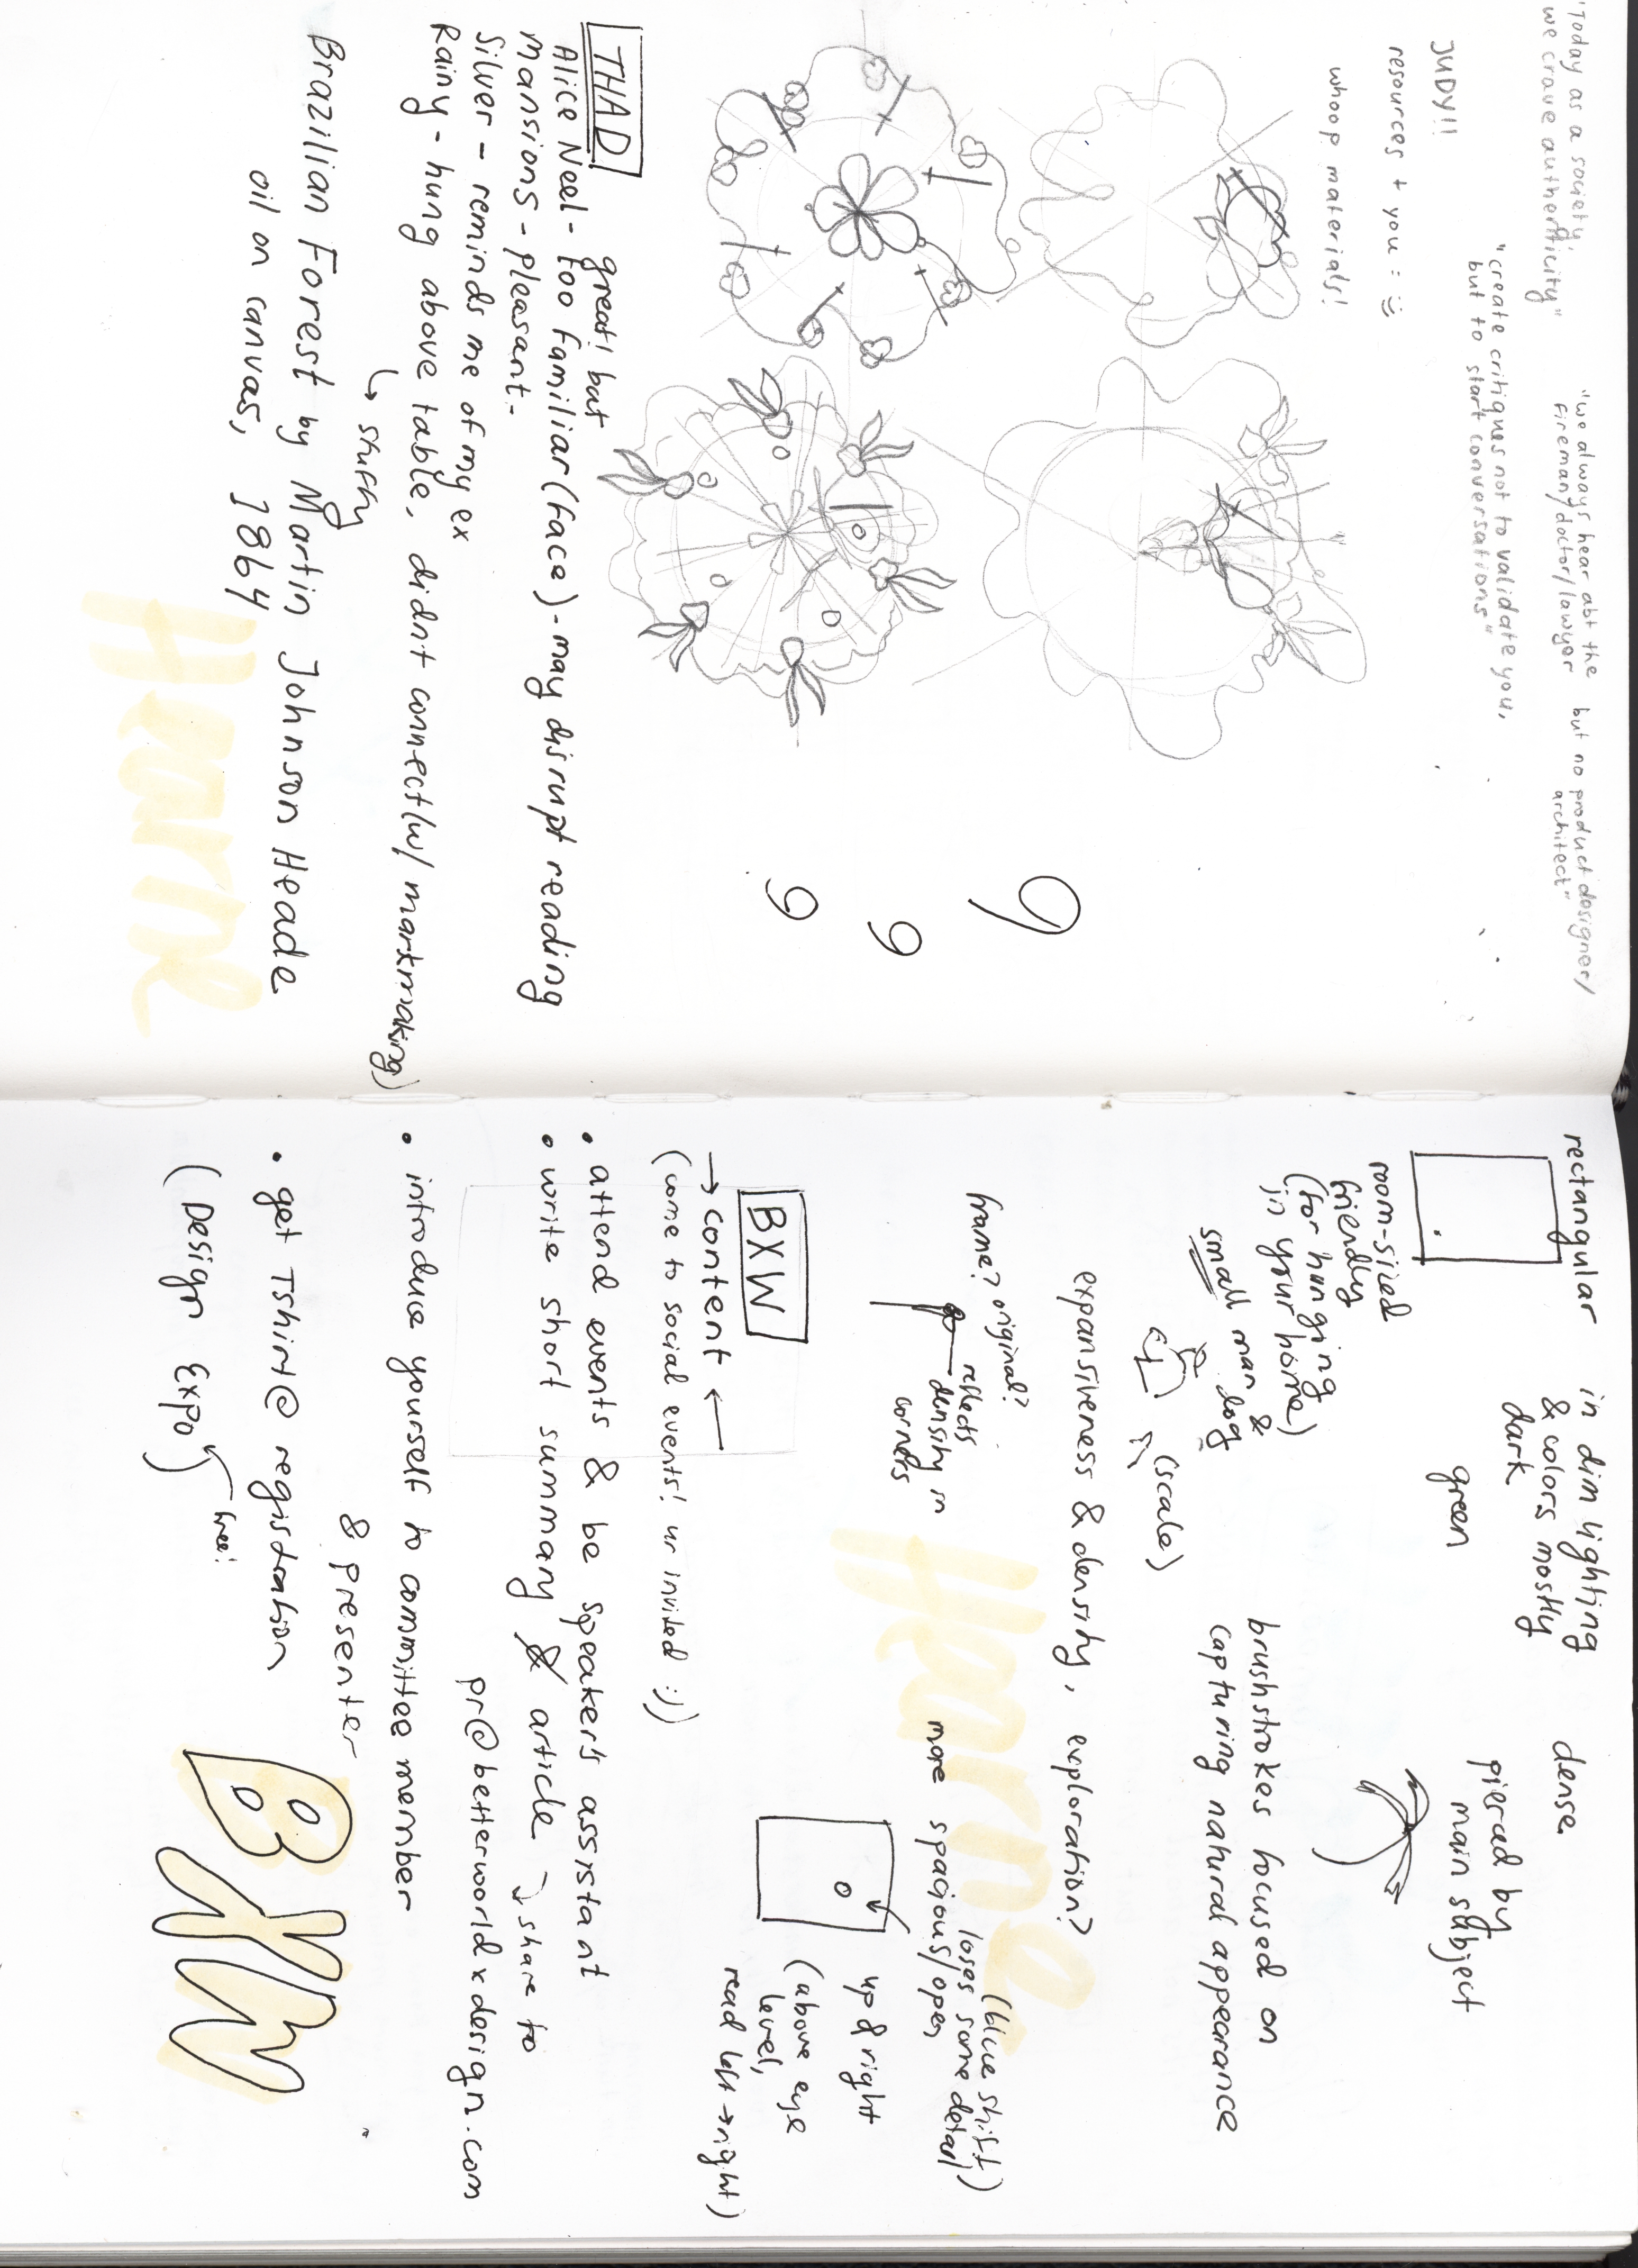 "Today as a society,
we crave authenticity"
"we always hear abt the
fireman/doctor/lawyer
but no product designer/
architect"
"create critiques not to validate you,
but to start conversations"
JUDY!!
resources + you = :)
whoop materials!
9
9
9
THAD
great! but
Alice Neel - too familiar (face) - may disrupt reading
Mansions - pleasant -
Silver - reminds me of my ex
Rainy - hung above table, didnt connect (w/ markmaking)
↳ stuffy
Brazilian Forest by Martin Johnson Heade
oil on canvas, 1864
Hearne
rectangular
in dim lighting
& colors mostly
dark
green
dense
pierced by
main subject
room-sized
friendly
(for hanging
in your home)
small man &
dog
(scale)
brushstrokes focused on
capturing natural appearance
expansiveness & density, exploration?
frame? original?
reflects
density in
corners
(blue shift)
loses some detail
more spacious/open
up & right
(above eye
level,
read left → right)
BXW
→ content ←
(come to social events! ur invited :))
• attend events & be speaker's assistant
• write short summary & article → share to
pr@betterworldxdesign.com
• introduce yourself to committee member
& presenter
• get Tshirt @ registration
(Design Expo
free!
BXW